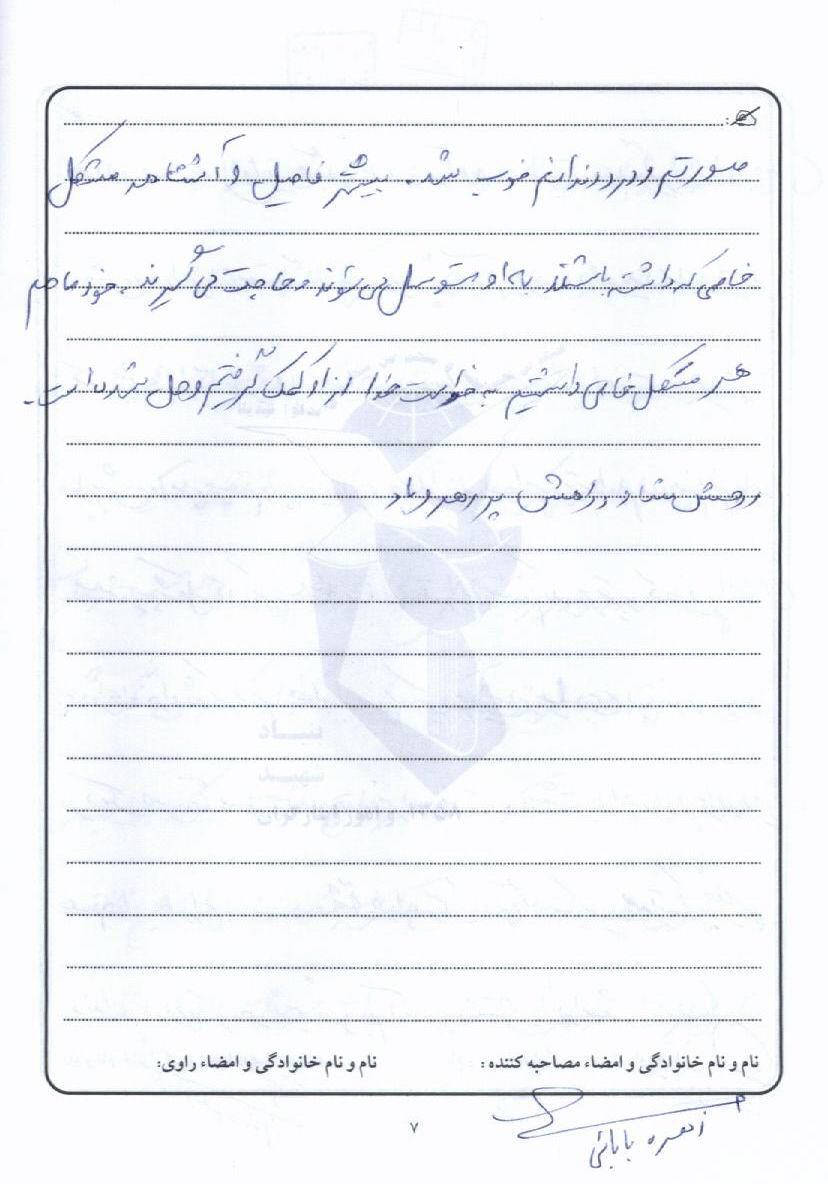 صورتم و درد دندانم خوب شد. بیشتر فامیل و آشنا هر مشکل
خاصی که داشته باشند به او متوسل می شوند و حاجت می گیرند. خود ما هم
هر مشکل خاصی داشتیم به خواست خدا از او کمک گرفتیم و حل شده است.
روحش شاد و راهش پر رهرو باد
نام و نام خانوادگی و امضاء مصاحبه کننده :
نام و نام خانوادگی و امضاء راوی:
زهره بابائی
۷